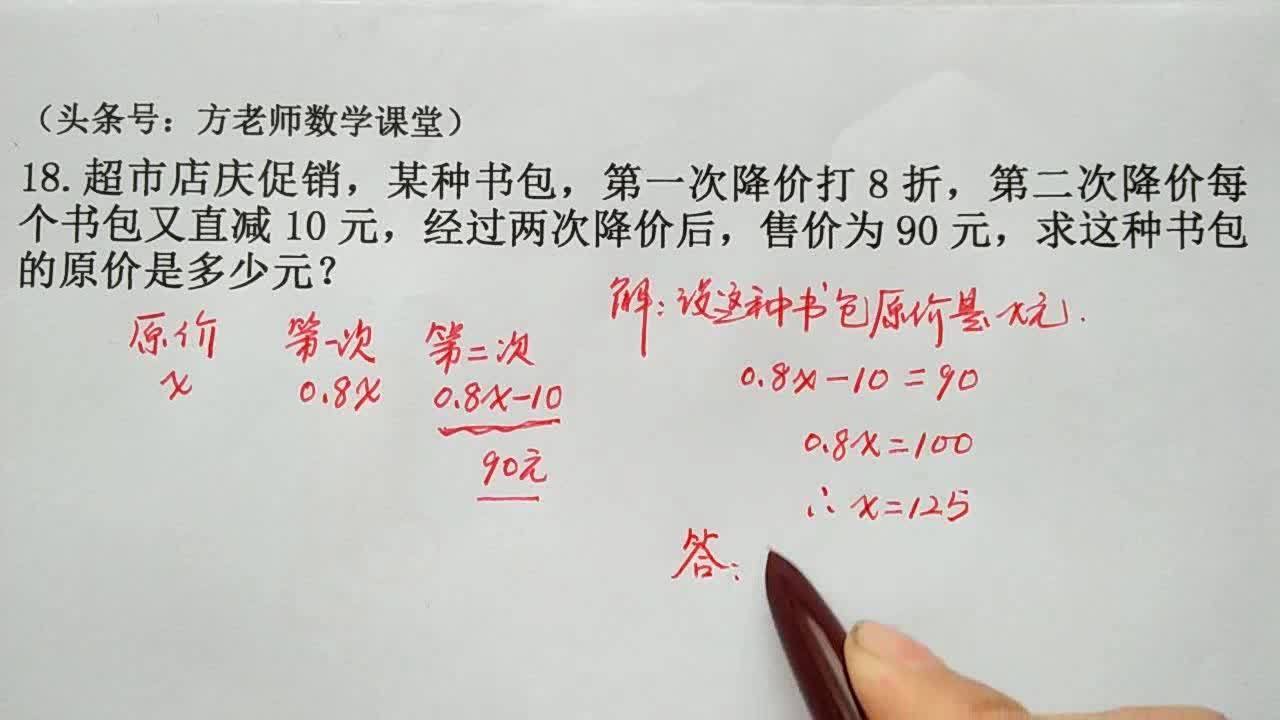 （头条号：方老师数学课堂）
18.超市店庆促销，某种书包，第一次降价打8折，第二次降价每
个书包又直减10元，经过两次降价后，售价为90元，求这种书包
的原价是多少元？
原价 第一次 第二次
x 0.8x 0.8x-10
90元
解：设这种书包原价是x元.
0.8x-10=90
0.8x=100
∴ x=125
答：